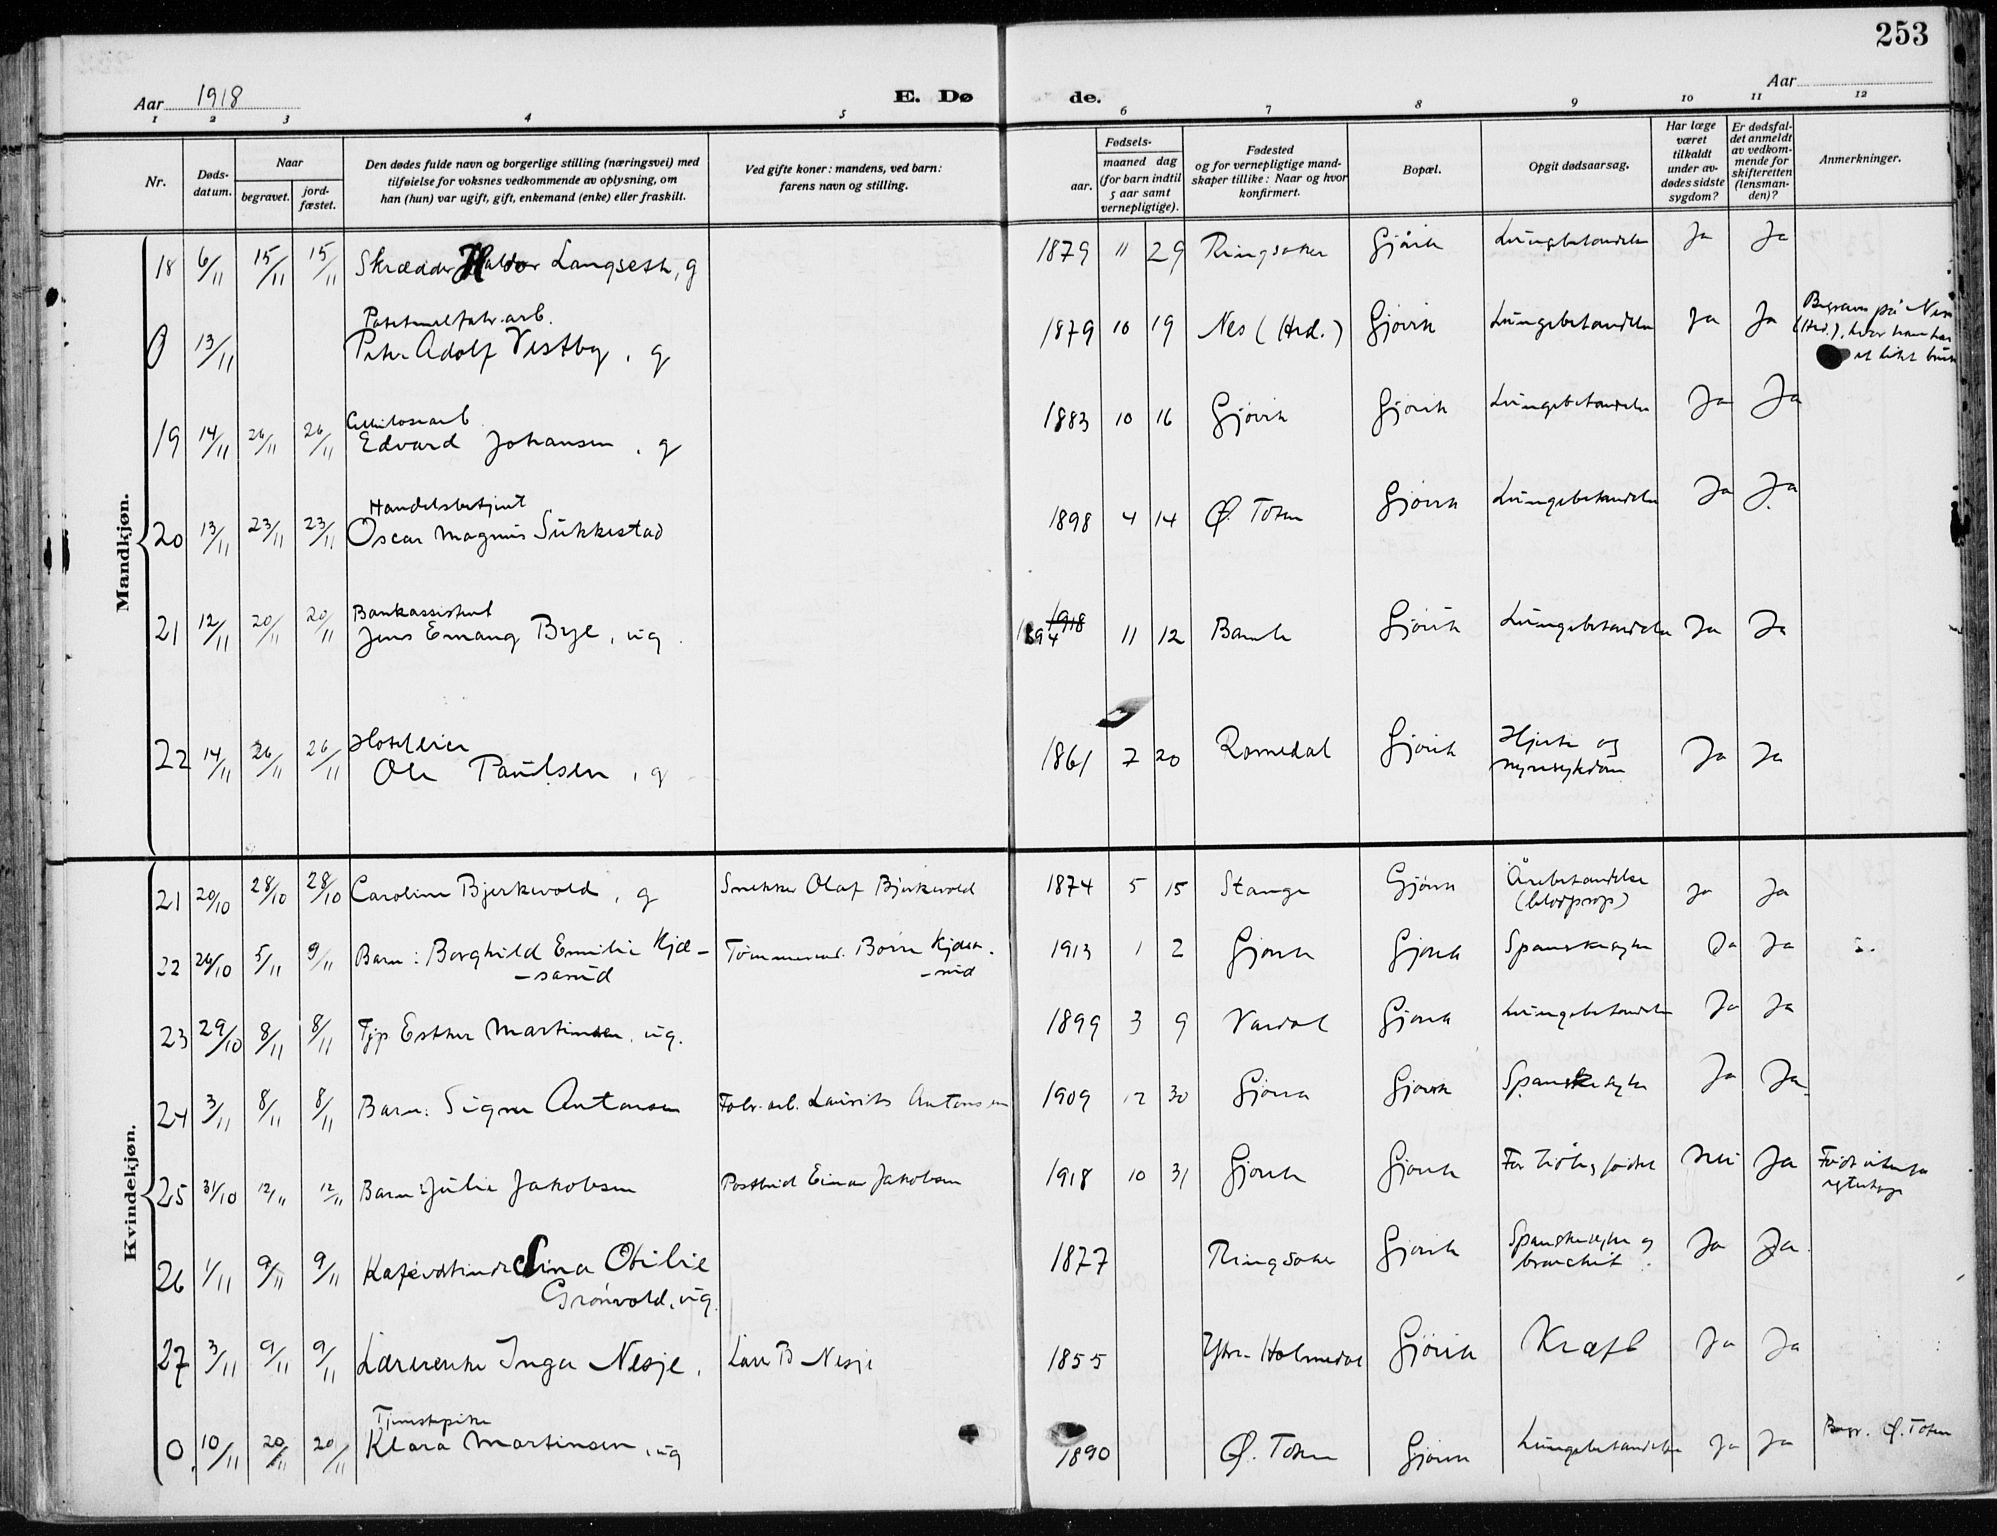 253
Aar 1918
E. Dø de.
Aar
1 2 3 4 5 6 7 8 9 10 11 12
Nr.
Døds-
datum.
Naar
begravet.
jord-
fæstet.
Den dødes fulde navn og borgerlige stilling (næringsvei) med
tilføielse for voksnes vedkommende av oplysning, om
han (hun) var ugift, gift, enkemand (enke) eller fraskilt.
Ved gifte koner: mandens, ved barn:
farens navn og stilling.
Fødsels-
aar.
maaned dag
(for barn indtil
5 aar samt
vernepligtige).
Fødested
og for vernepligtige mand-
skaper tillike: Naar og hvor
konfirmert.
Bopæl.
Opgit dødsaarsag.
Har læge
været
tilkaldt
under av-
dødes sidste
sygdom?
Er dødsfal-
det anmeldt
av vedkom-
mende for
skifteretten
(lensman-
den)?
Anmerkninger.
Mandkjøn.
18 6/11 15/11 15/11 Skrædder Haldor Langseth, g 1879 11 29 Ringsaker Gjövik Lungebetændelse Ja Ja
0 13/11 Peter Adolf Vestby, g 1879 10 19 Nes (Hed.) Gjövik Lungebetændelse Ja Ja Begraves på Nes
(Hed.), hvor han har
et litet bruk
19 14/11 26/11 26/11 Cellulosearb.
Edvard Johansen, g 1883 10 16 Gjövik Gjövik Lungebetændelse Ja Ja
20 13/11 23/11 23/11 Handelsbetjent
Oscar Magnus Sukkestad 1898 4 14 Ø. Toten Gjövik Lungebetændelse Ja Ja
21 12/11 20/11 20/11 Bankassistent
Jens Emang Bye, ug. 1918 1894 11 12 Bamle Gjövik Lungebetændelse Ja Ja
22 14/11 26/11 26/11 Hoteleier
Ole Paulsen, g 1861 7 20 Romedal Gjövik Hjerte og
nyresykdom Ja Ja
Kvindekjøn.
21 20/10 28/10 28/10 Caroline Bjerkevold, g Snekker Olaf Bjerkevold 1874 5 15 Stange Gjövik Årebetændelse
(blodprop) Ja Ja
22 26/10 5/11 9/11 Barn: Borghild Emilie Kjæ-
-sarud 1913 1 2 Gjövik Gjövik Spanskesyke Ja Ja
23 29/10 8/11 8/11 Tjp Esther Martinsen, ug. 1899 3 9 Vardal Gjövik Lungebetændelse Ja Ja
24 3/11 8/11 8/11 Barn: Signe Antonsen Fabr. arb. Laurits Antonsen 1909 12 30 Gjövik Gjövik Spanskesyke Ja Ja
25 31/10 12/11 12/11 Barn: Julie Jakobsen Postbud Einar Jakobsen 1918 10 31 Gjövik Gjövik For tidlig födt Nei Ja Födt utenfor
egteskap
26 1/11 9/11 9/11 Kafévertinde Lina Otilie
Grönvold, ug. 1877 Ringsaker Gjövik Spanskesyke og
bronchit Ja Ja
27 3/11 9/11 9/11 Lærerenke Inger Nesje, Lars B Nesje 1855 Ytre-Holmedal Gjövik Kræft Ja Ja
0 10/11 20/11 20/11 Tjenestepike
Klara Martinsen, ug 1890 Ø. Toten Gjövik Lungebetændelse Ja Ja Begr. Ø. Toten